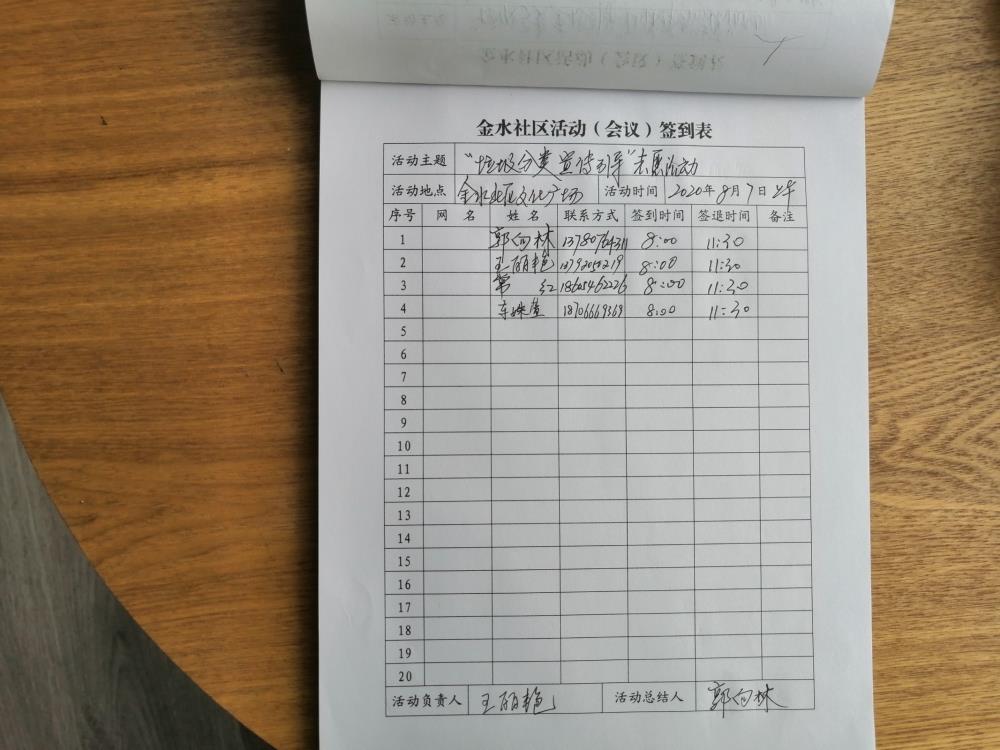 金水社区活动（会议）签到表
活动主题 "垃圾分类宣传引导"志愿活动
活动地点 金水社区文化广场 活动时间 2020年8月7日上午
序号 网 名 姓 名 联系方式 签到时间 签退时间 备注
1 郭向林 13780764311 8:00 11:30
2 王丽艳 8:00 11:30
3 常 红 18605462226 8:00 11:30
4 18706669369 8:00 11:30
5
6
7
8
9
10
11
12
13
14
15
16
17
18
19
20
活动负责人 王丽艳 活动总结人 郭向林